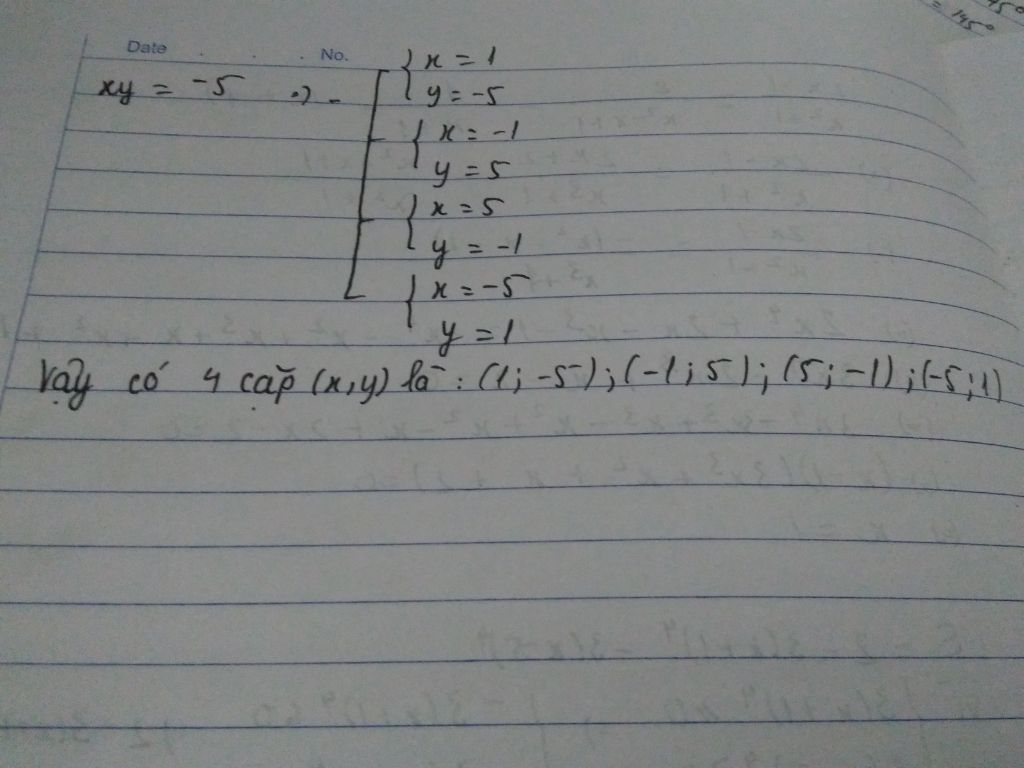 = 145°
Date . . . No.
xy = -5 => { x = 1
y = -5
{ x = -1
y = 5
{ x = 5
y = -1
{ x = -5
y = 1
Vậy có 4 cặp (x,y) là : (1; -5) ; (-1; 5) ; (5; -1) ; (-5; 1)